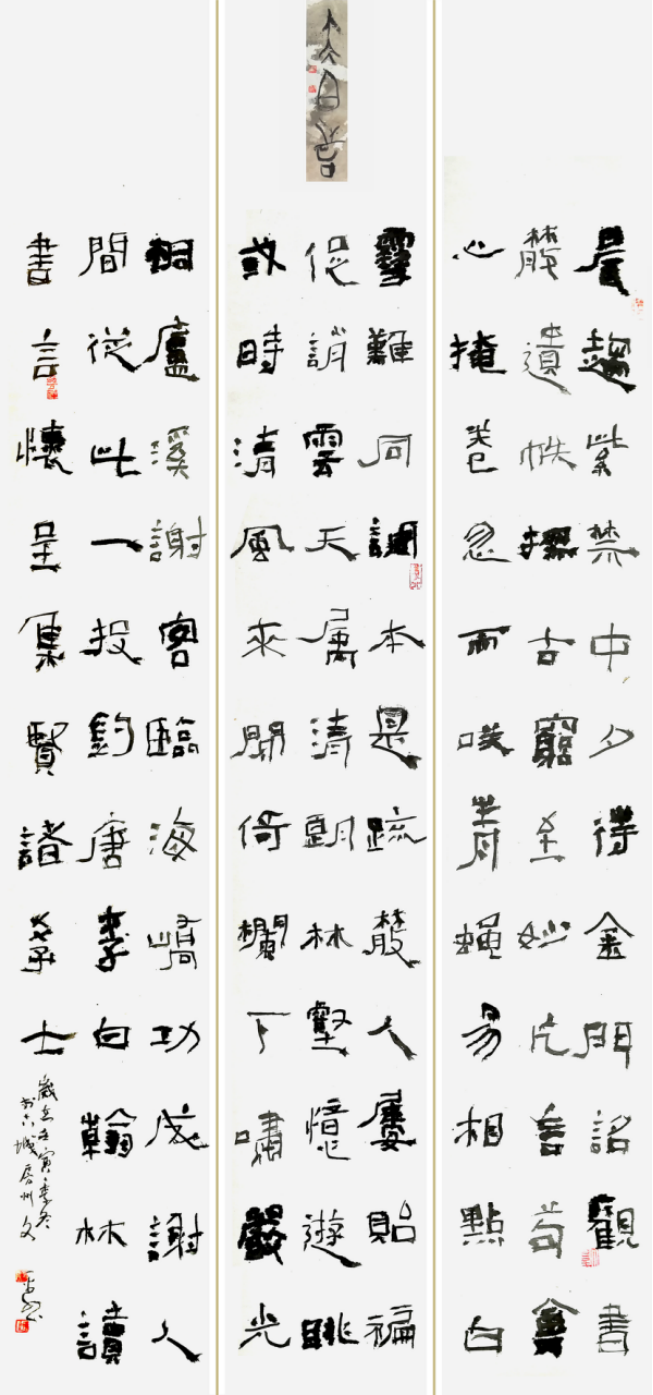 晨趨紫禁中夕待金門詔觀書
散遺帙探古窮至妙片言苟會
心掩卷忽而咲青蠅易相點白
雪難同調本是疏散人屢貽褊
促誚雲天屬清朗林壑憶遊眺
或時清風來閑倚欄下嘯嚴光
桐廬溪謝客臨海嶠功成謝人
間從此一投釣唐李白翰林讀
書言懷呈集賢諸學士
歲在壬寅季冬